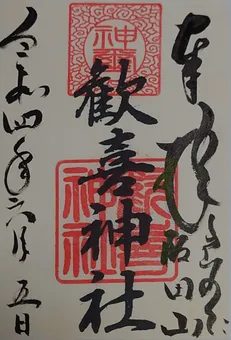 奉拝
神璽
歡喜神社
歡喜神社
令和四年六月五日